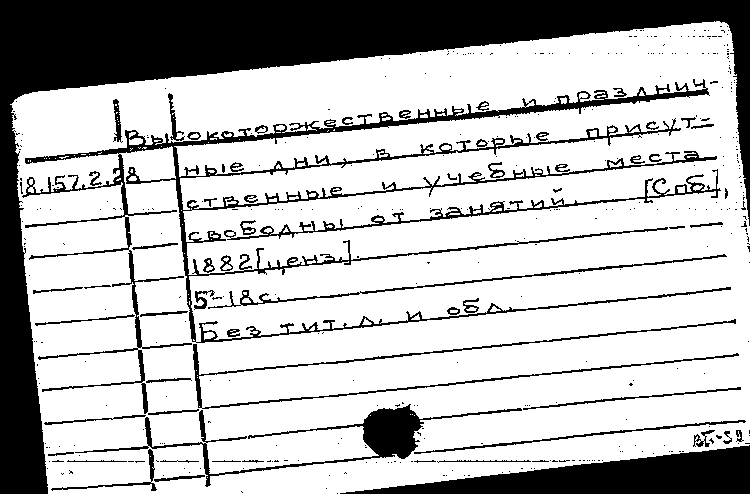 Высокоторжественные и празднич-
18.157.2.28 ные дни, в которые присут-
ственные и учебные места
свободны от занятий. [Спб.],
1882 [ценз.].
5²-18с.
Без тит. л. и обл.